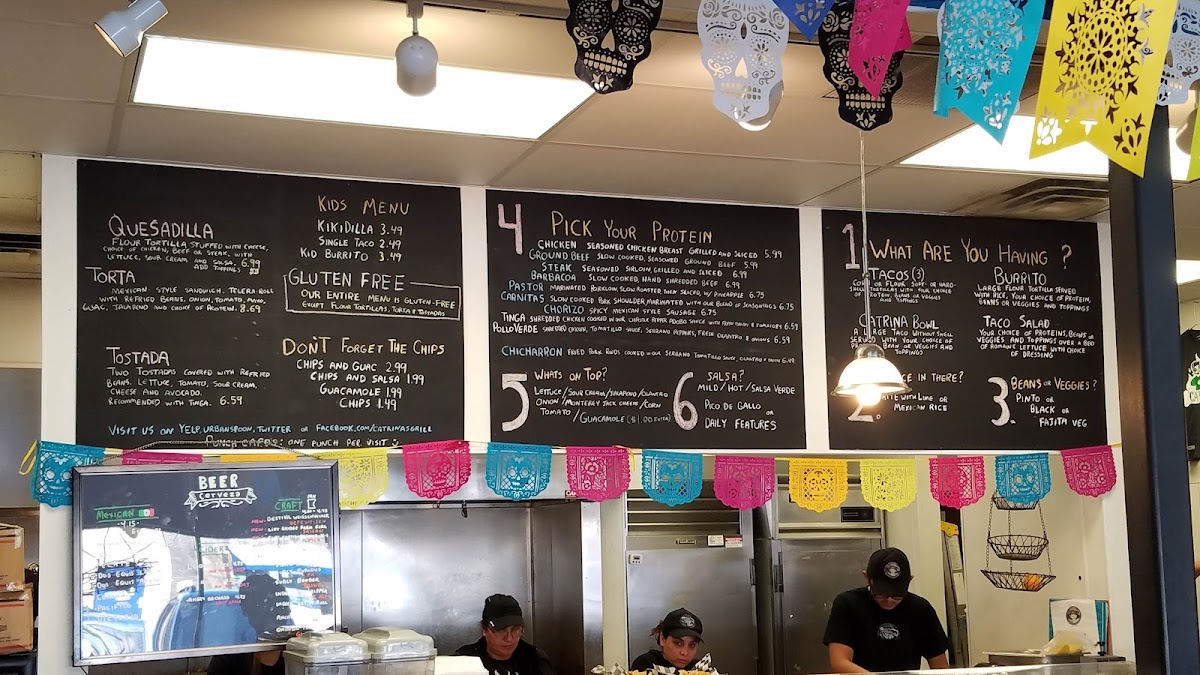 QUESADILLA
FLOUR TORTILLA STUFFED WITH CHEESE,
CHOICE OF CHICKEN, BEEF OR STEAK, WITH
LETTUCE, SOUR CREAM AND SALSA. 6.99
ADD TOPPINGS
TORTA
MEXICAN STYLE SANDWICH. TELERA ROLL
WITH REFRIED BEANS, ONION, TOMATO, MAYO,
GUAC, JALAPENO AND CHOICE OF PROTEIN. 8.69
TOSTADA
TWO TOSTADAS COVERED WITH REFRIED
BEANS, LETTUCE, TOMATO, SOUR CREAM,
CHEESE AND AVOCADO.
RECOMMENDED WITH TINGA. 6.59
KIDS MENU
KIKIDILLA 3.49
SINGLE TACO 2.49
KID BURRITO 3.49
GLUTEN FREE
OUR ENTIRE MENU IS GLUTEN-FREE
EXCEPT FLOUR TORTILLAS, TORTA & TOSTADAS
DON'T FORGET THE CHIPS
CHIPS AND GUAC 2.99
CHIPS AND SALSA 1.99
GUACAMOLE 1.99
CHIPS 1.49
VISIT US ON YELP, URBANSPOON, TWITTER OR FACEBOOK.COM/CATRINASGRILL
PUNCH CARDS: ONE PUNCH PER VISIT
4 PICK YOUR PROTEIN
CHICKEN SEASONED CHICKEN BREAST GRILLED AND SLICED 5.99
GROUND BEEF SLOW COOKED, SEASONED GROUND BEEF 5.99
STEAK SEASONED SIRLOIN, GRILLED AND SLICED 6.99
BARBACOA SLOW COOKED, HAND SHREDDED BEEF 6.99
PASTOR MARINATED PORK LOIN, SLOW ROASTED, THEN SLICED, W/ PINEAPPLE 6.75
CARNITAS SLOW COOKED PORK SHOULDER, MARINATED WITH OUR BLEND OF SEASONINGS 6.75
CHORIZO SPICY MEXICAN STYLE SAUSAGE 6.75
TINGA SHREDDED CHICKEN COOKED IN OUR CHIPOTLE PEPPER ADOBO SAUCE WITH FRESH ONIONS & TOMATOES 6.59
POLLO VERDE SHREDDED CHICKEN, TOMATILLO SAUCE, SERRANO PEPPERS, FRESH CILANTRO & ONIONS 6.59
CHICHARRON FRIED PORK RINDS COOKED IN OUR SERRANO TOMATILLO SAUCE, CILANTRO & ONION 6.49
5 WHATS ON TOP?
LETTUCE/SOUR CREAM/JALAPENO/CILANTRO
ONION/MONTEREY JACK CHEESE/CORN
TOMATO/GUACAMOLE ($1.00 EXTRA)
6 SALSA?
MILD/HOT/SALSA VERDE
PICO DE GALLO OR
DAILY FEATURES
1. WHAT ARE YOU HAVING?
TACOS (3)
CORN OR FLOUR. SOFT OR HARD-
SHELL TORTILLAS WITH CHOICE OF
PROTEIN, BEANS OR VEGGIES
AND TOPPINGS
BURRITO
LARGE FLOUR TORTILLA SERVED
WITH RICE, YOUR CHOICE OF PROTEIN,
BEANS OR VEGGIES AND TOPPINGS
CATRINA BOWL
A LARGE TACO WITHOUT SHELL
SERVED WITH YOUR CHOICE OF
BEAN OR VEGGIES AND
TOPPINGS
TACO SALAD
YOUR CHOICE OF PROTEINS, BEANS OR
VEGGIES AND TOPPINGS OVER A BED
OF ROMAINE LETTUCE WITH CHOICE
OF DRESSING
2. IN THERE?
WITH LIME OR
MEXICAN RICE
3. BEANS OR VEGGIES?
PINTO OR
BLACK OR
FAJITA VEG
BEER
Cerveza
MEXICAN
4.15
DOS EQUIS
DOS EQUIS
PACIFICO
CIDER
ANGRY ORCHARD 4.75
CRAFT